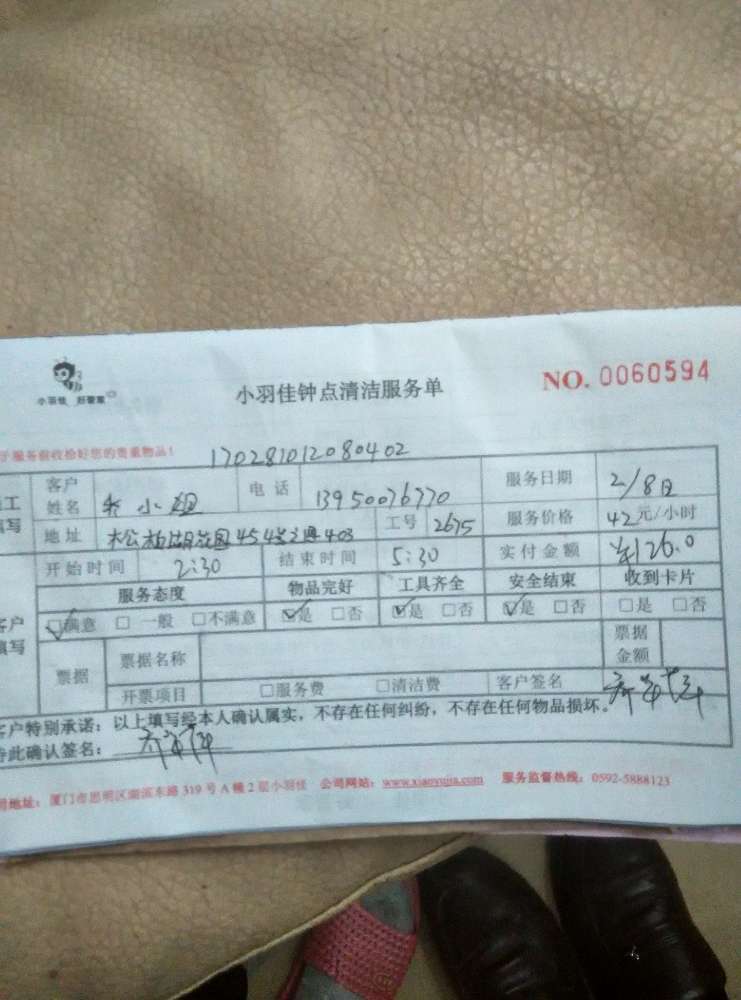 小羽佳 好管家
小羽佳钟点清洁服务单
NO. 0060594
服务前收拾好您的贵重物品!
170281012080402
客户姓名 小姐 电话 13950076770 服务日期 2/8日
地址 454号之通403 工号 2675 服务价格 42元/小时
开始时间 2:30 结束时间 5:30 实付金额 ¥126.0
服务态度 物品完好 工具齐全 安全结束 收到卡片
☑满意 □一般 □不满意 ☑是 □否 ☑是 □否 ☑是 □否 □是 □否
票据 票据名称 票据金额
开票项目 □服务费 □清洁费 客户签名
客户特别承诺：以上填写经本人确认属实，不存在任何纠纷，不存在任何物品损坏。
此确认签名：
地址：厦门市思明区湖滨东路 319 号 A 幢 2 层小羽佳 公司网站：www.xiaoyujia.com 服务监督热线：0592-5888123